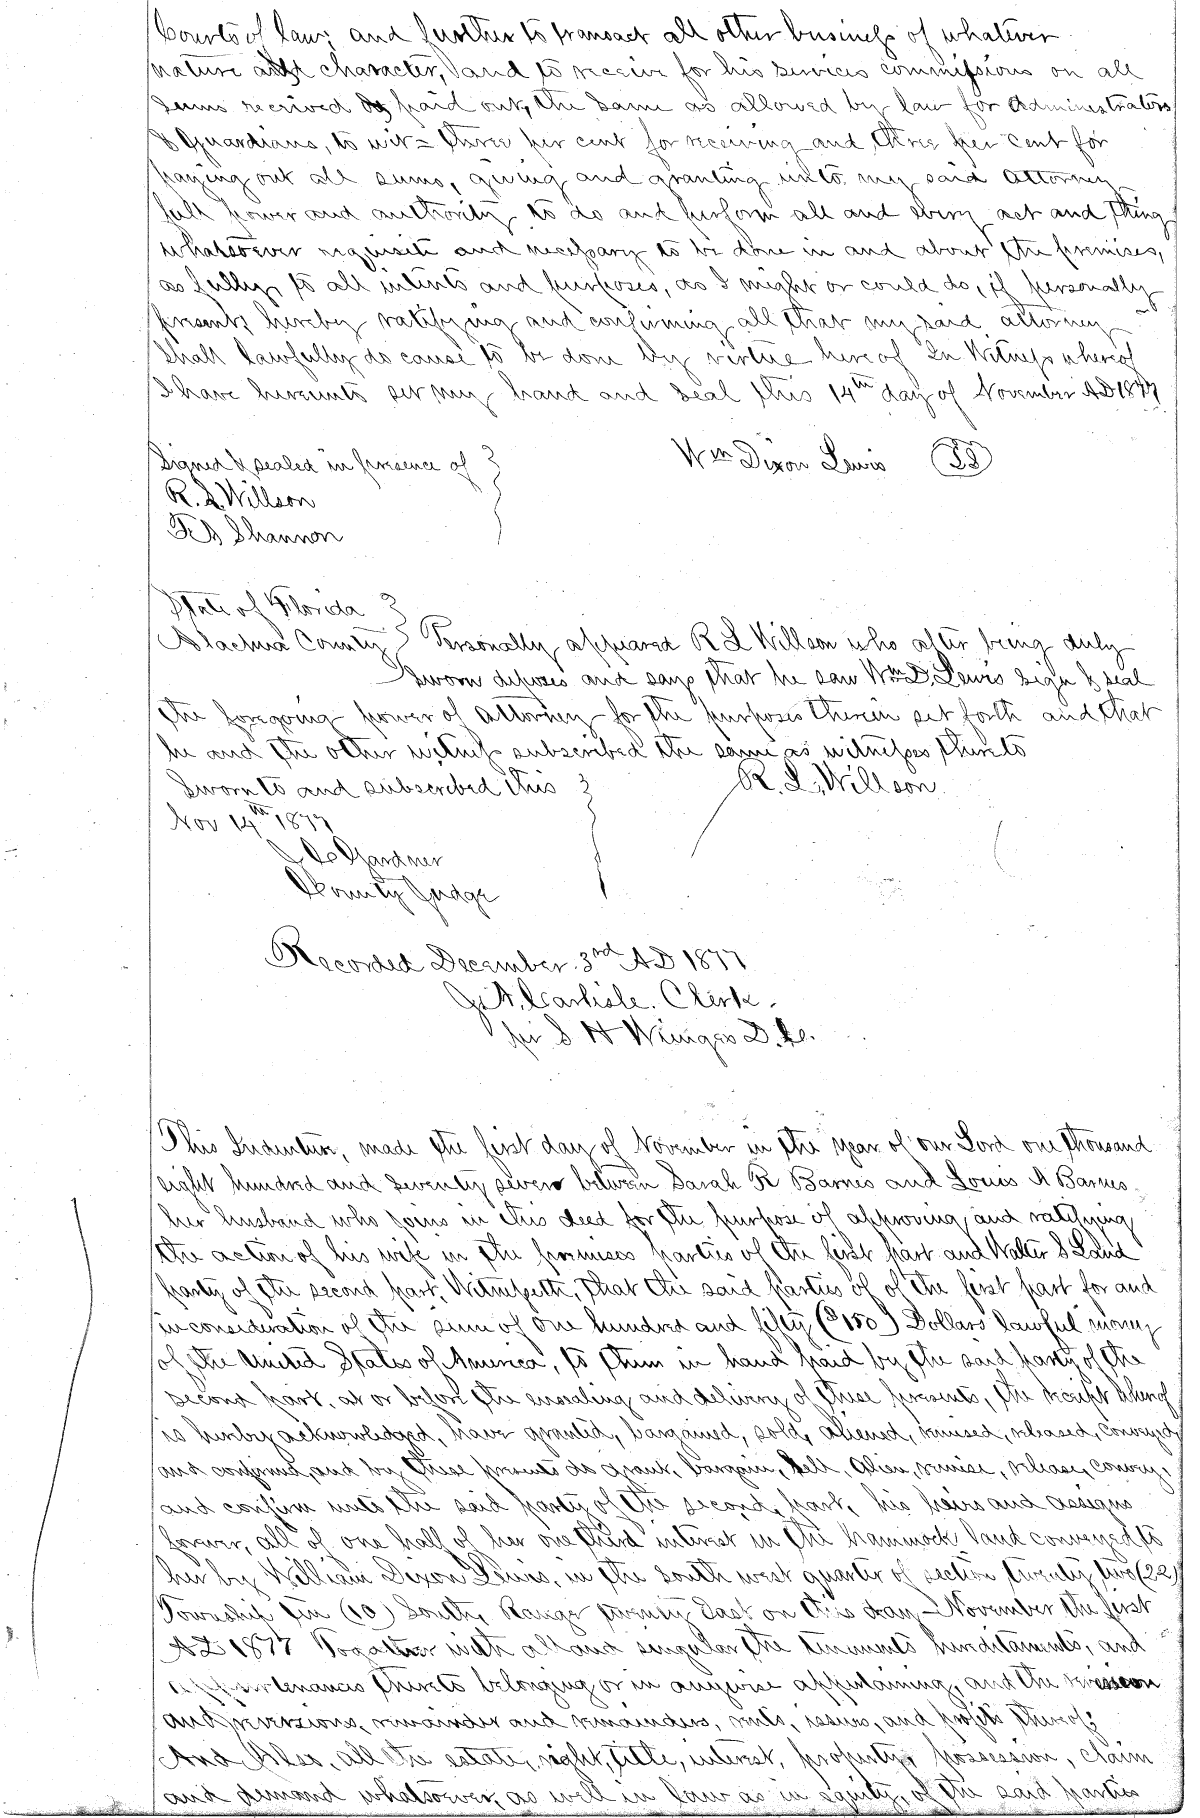 Courts of law; and further to transact all other business of whatever
nature and character, and to receive for his services commissions on all
sums received & paid out, the same as allowed by law for Administrators
& Guardians, to wit = three per cent for receiving and three per cent for
paying out all sums, giving and granting unto my said attorney
full power and authority to do and perform all and every act and thing
whatsoever requisite and necessary to be done in and about the premises,
as fully to all intents and purposes, as I might or could do, if personally
present, hereby ratifying and confirming all that my said attorney
shall lawfully do cause to be done by virtue hereof In Witness whereof
I have hereunto set my hand and seal this 14th day of November AD 1877
Signed & sealed in presence of
Wm Dixon Lewis
R. L. Willson
Shannon
State of Florida
Alachua County Personally appeared R L Willson who after being duly
sworn deposes and says that he saw Wm D. Lewis sign & seal
the foregoing power of attorney for the purposes therein set forth and that
he and the other witness subscribed the same as witnesses thereto
Sworn to and subscribed this
R. L. Willson
Nov 14th 1877
Gardner
County Judge
Recorded December 3rd AD 1877
J. A. Carlisle. Clerk.
per S H Wienges D. C.
This Indenture, made the first day of November in the year of our Lord one thousand
eight hundred and seventy seven between Sarah R Barnes and Louis A Barnes
her husband who joins in this deed for the purpose of approving and ratifying
the action of his wife in the premises parties of the first part and Walter S Land
party of the second part, Witnesseth, that the said parties of of the first part for and
in consideration of the sum of one hundred and fifty ($150) Dollars lawful money
of the United States of America, to them in hand paid by the said party of the
second part, at or before the ensealing and delivery of these presents, the receipt whereof
is hereby acknowledged, have granted, bargained, sold, aliened, remised, released, conveyed,
and confirmed, and by these presents do grant, bargain, sell, alien, remise, release, convey,
and confirm unto the said party of the second part, his heirs and assigns
forever, all of one half of her one third interest in the hammock land conveyed to
her by William Dixon Lewis, in the south west quarter of section twenty two (22)
Township ten (10) South, Range twenty East on this day November the first
AD 1877 Together with all and singular the tenements hereditaments, and
appurtenances thereto belonging or in anywise appertaining, and the reversion
and reversions, remainder and remainders, rents, issues, and profits thereof;
And Also, all the estate, right, title, interest, property, possession, claim
and demand whatsoever, as well in law as in equity, of the said parties